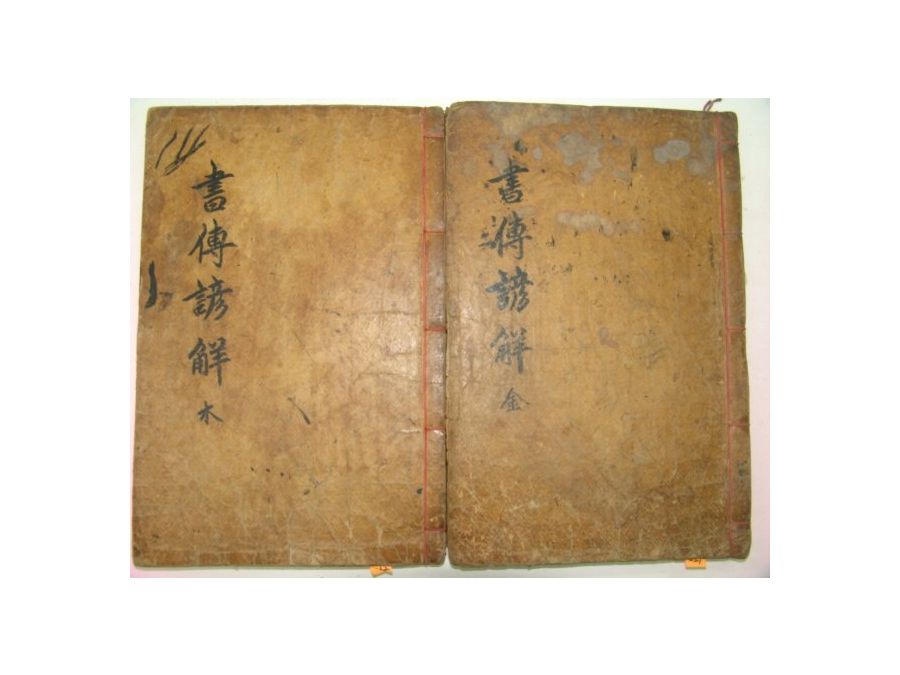 書傳諺解 木
書傳諺解 金